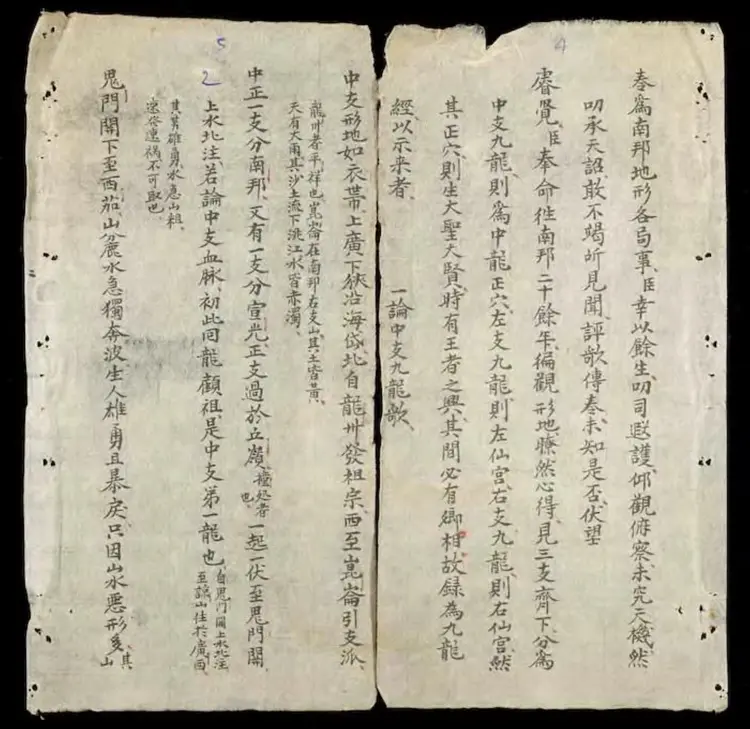 4
奏爲南邦地形各局事、臣幸以餘生叨司遐護仰觀俯察未究天機然
叨承天詔、敢不竭所見聞、評歌傳奏未知是否、伏望
睿覺、臣奉命往南邦二十餘年、徧觀形地瞭然心得、見三支齊下分爲
中支九龍、則爲中龍正穴、左支九龍則左仙宮、右支九龍則右仙宮、然
其正穴、則生大聖大賢、時有王者之興、其間必有卿相、故録為九龍
經以示来者、 一論中支九龍歌、
5
中支形地如衣帶、上廣下狹沿海岱、北自龍卅發祖宗、西至崑崙引支派、
龍卅者平祥也、崑崙在南邦右支山、其土皆黃、
天有大雨其沙土流下洮江水皆赤濁、
中正一支分南邦、又有一支分宣光、正支過於丘嶺、起者也、一起一伏至鬼門關、
2
上水北注、若論中支血脉、初此回龍顧祖、是中支第一龍也、自鬼門關上水北注至諒山住於廣西、
雄勇、水急山粗、
速發速禍不可取也、
鬼門關下至西茄、山分麗水急獨奔波、生人雄勇且暴戾、只因山水悪形多、其山